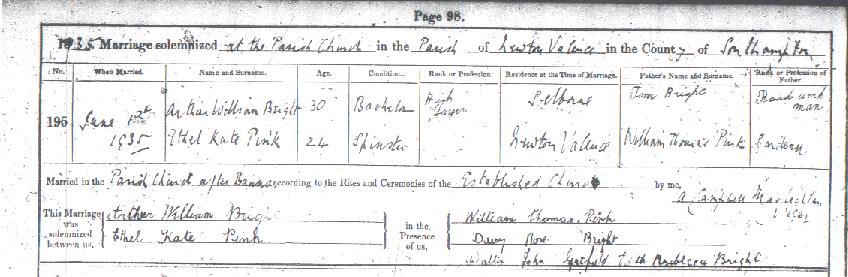 Page 98.
1935. Marriage solemnized at the Parish Church in the Parish of Newton Valence in the County of Southampton
No. When Married. Name and Surname. Age. Condition. Rank or Profession. Residence at the Time of Marriage. Father's Name and Surname. Rank or Profession of Father.
195 June 1935 Arthur William Bright 30 Bachelor Selborne Bright Road work man
Ethel Kate Pink 24 Spinster Newton Valence William Thomas Pink
Married in the Parish Church after Banns according to the Rites and Ceremonies of the Established Church by me, A Campbell
This Marriage was solemnized between us, Arthur William Brig
Ethel Kate Pink
in the Presence of us, William Thomas Pink
Rose Bright
John Bright